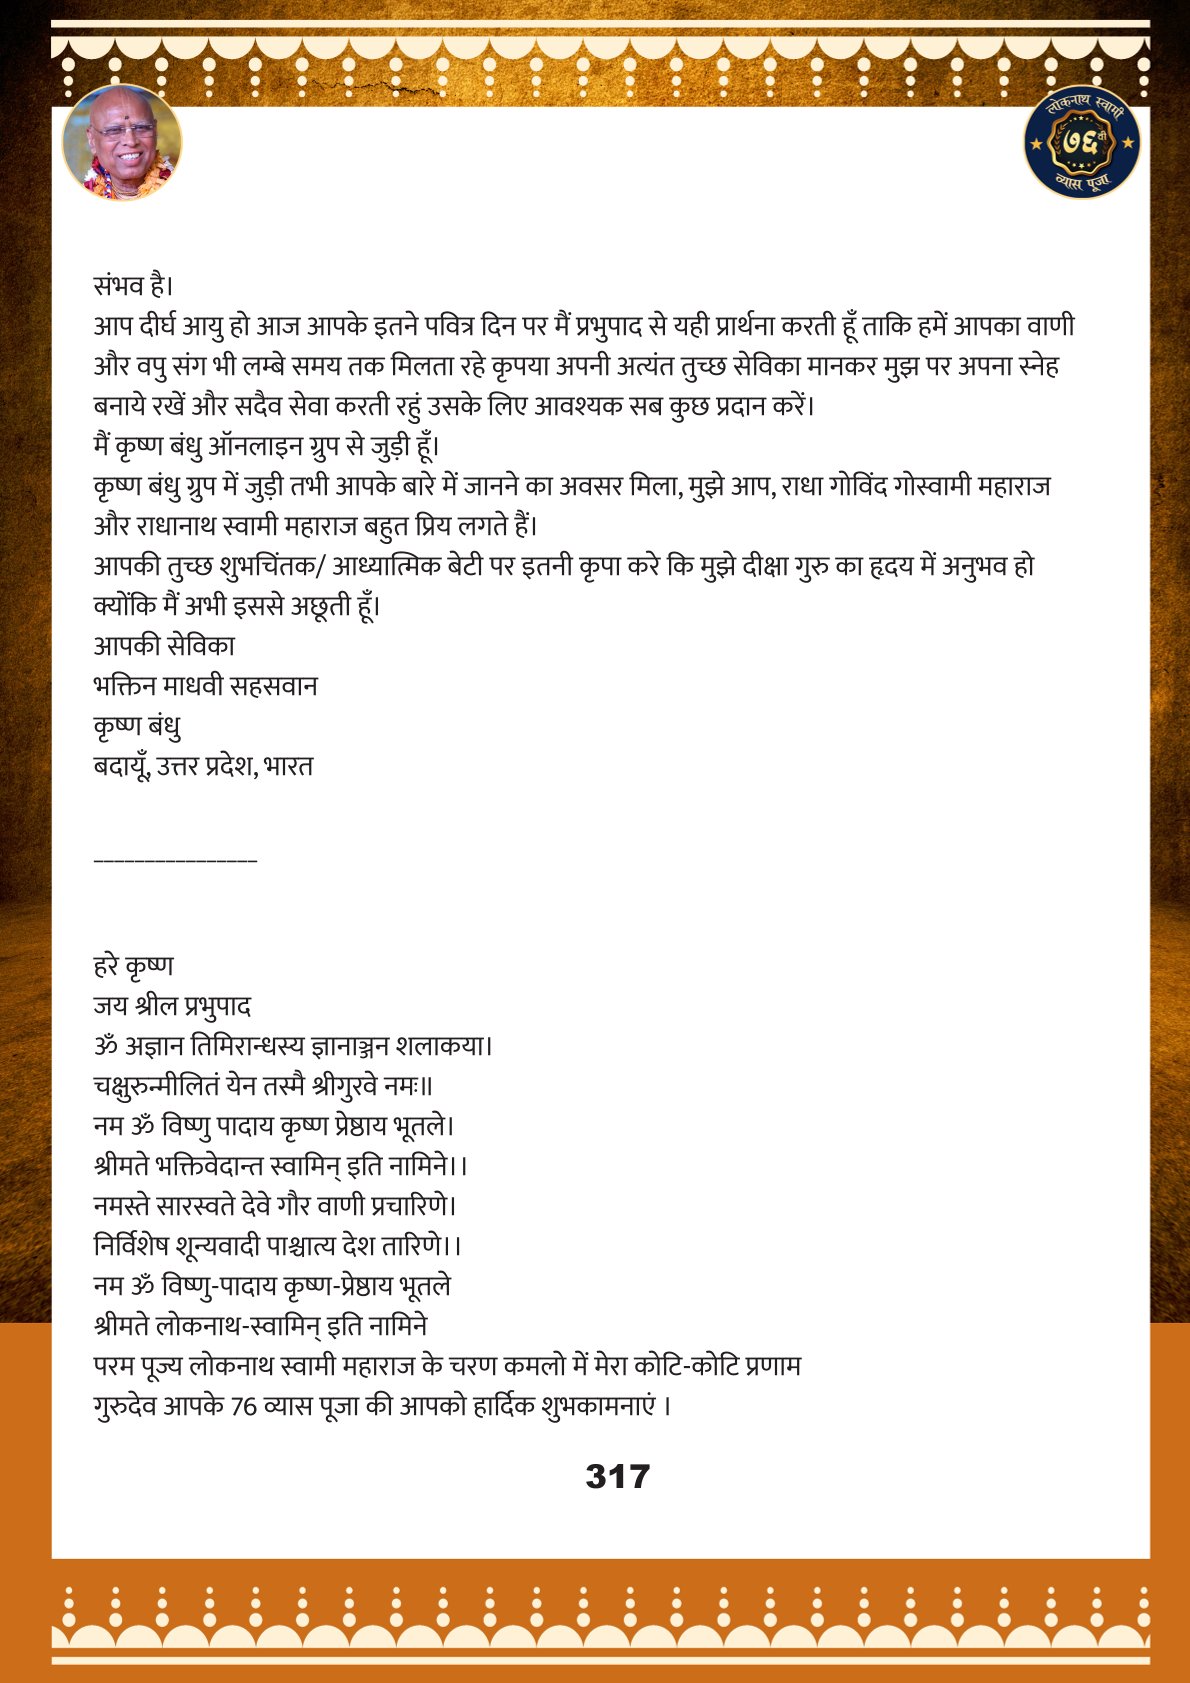 लोकनाथ स्वामी
७६वी
व्यास पूजा
संभव है।
आप दीर्घ आयु हो आज आपके इतने पवित्र दिन पर मैं प्रभुपाद से यही प्रार्थना करती हूँ ताकि हमें आपका वाणी
और वपु संग भी लम्बे समय तक मिलता रहे कृपया अपनी अत्यंत तुच्छ सेविका मानकर मुझ पर अपना स्नेह
बनाये रखें और सदैव सेवा करती रहुं उसके लिए आवश्यक सब कुछ प्रदान करें।
मैं कृष्ण बंधु ऑनलाइन ग्रुप से जुड़ी हूँ।
कृष्ण बंधु ग्रुप में जुड़ी तभी आपके बारे में जानने का अवसर मिला, मुझे आप, राधा गोविंद गोस्वामी महाराज
और राधानाथ स्वामी महाराज बहुत प्रिय लगते हैं।
आपकी तुच्छ शुभचिंतक/ आध्यात्मिक बेटी पर इतनी कृपा करे कि मुझे दीक्षा गुरु का हृदय में अनुभव हो
क्योंकि मैं अभी इससे अछूती हूँ।
आपकी सेविका
भक्तिन माधवी सहसवान
कृष्ण बंधु
बदायूँ, उत्तर प्रदेश, भारत
________________
हरे कृष्ण
जय श्रील प्रभुपाद
ॐ अज्ञान तिमिरान्धस्य ज्ञानाञ्जन शलाकया।
चक्षुरुन्मीलितं येन तस्मै श्रीगुरवे नमः॥
नम ॐ विष्णु पादाय कृष्ण प्रेष्ठाय भूतले।
श्रीमते भक्तिवेदान्त स्वामिन् इति नामिने।।
नमस्ते सारस्वते देवे गौर वाणी प्रचारिणे।
निर्विशेष शून्यवादी पाश्चात्य देश तारिणे।।
नम ॐ विष्णु-पादाय कृष्ण-प्रेष्ठाय भूतले
श्रीमते लोकनाथ-स्वामिन् इति नामिने
परम पूज्य लोकनाथ स्वामी महाराज के चरण कमलो में मेरा कोटि-कोटि प्रणाम
गुरुदेव आपके 76 व्यास पूजा की आपको हार्दिक शुभकामनाएं ।
317